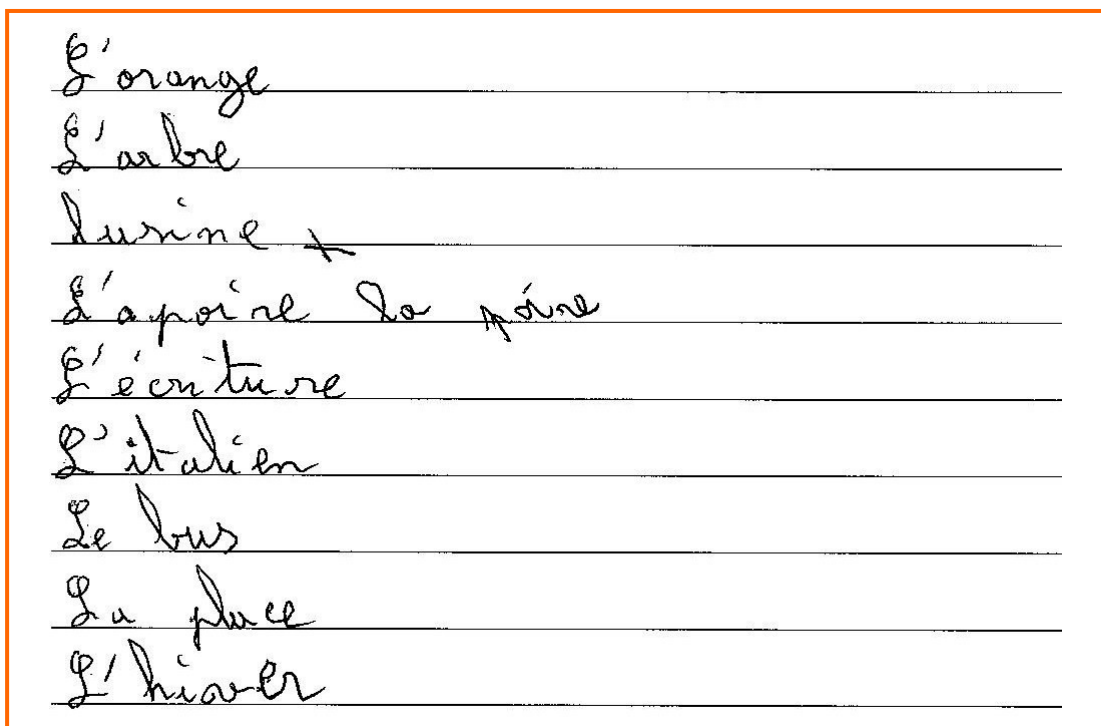 L'orange
L'arbre
lusine +
L'apoire la poire
L'écriture
L'italien
Le bus
La place
L'hiver